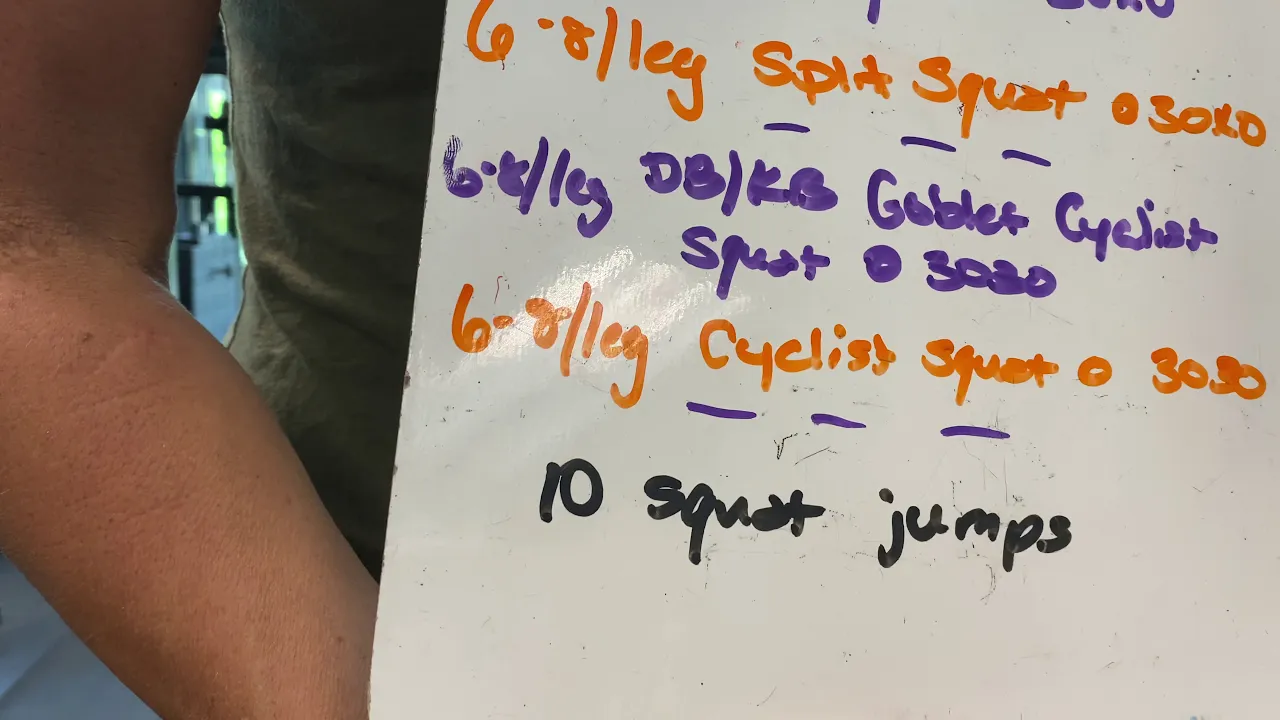 6-8/leg Split Squat @ 30X0
6-8/leg DB/KB Goblet Cyclist
Squat @ 3030
6-8/leg Cyclist squat @ 3030
10 squat jumps